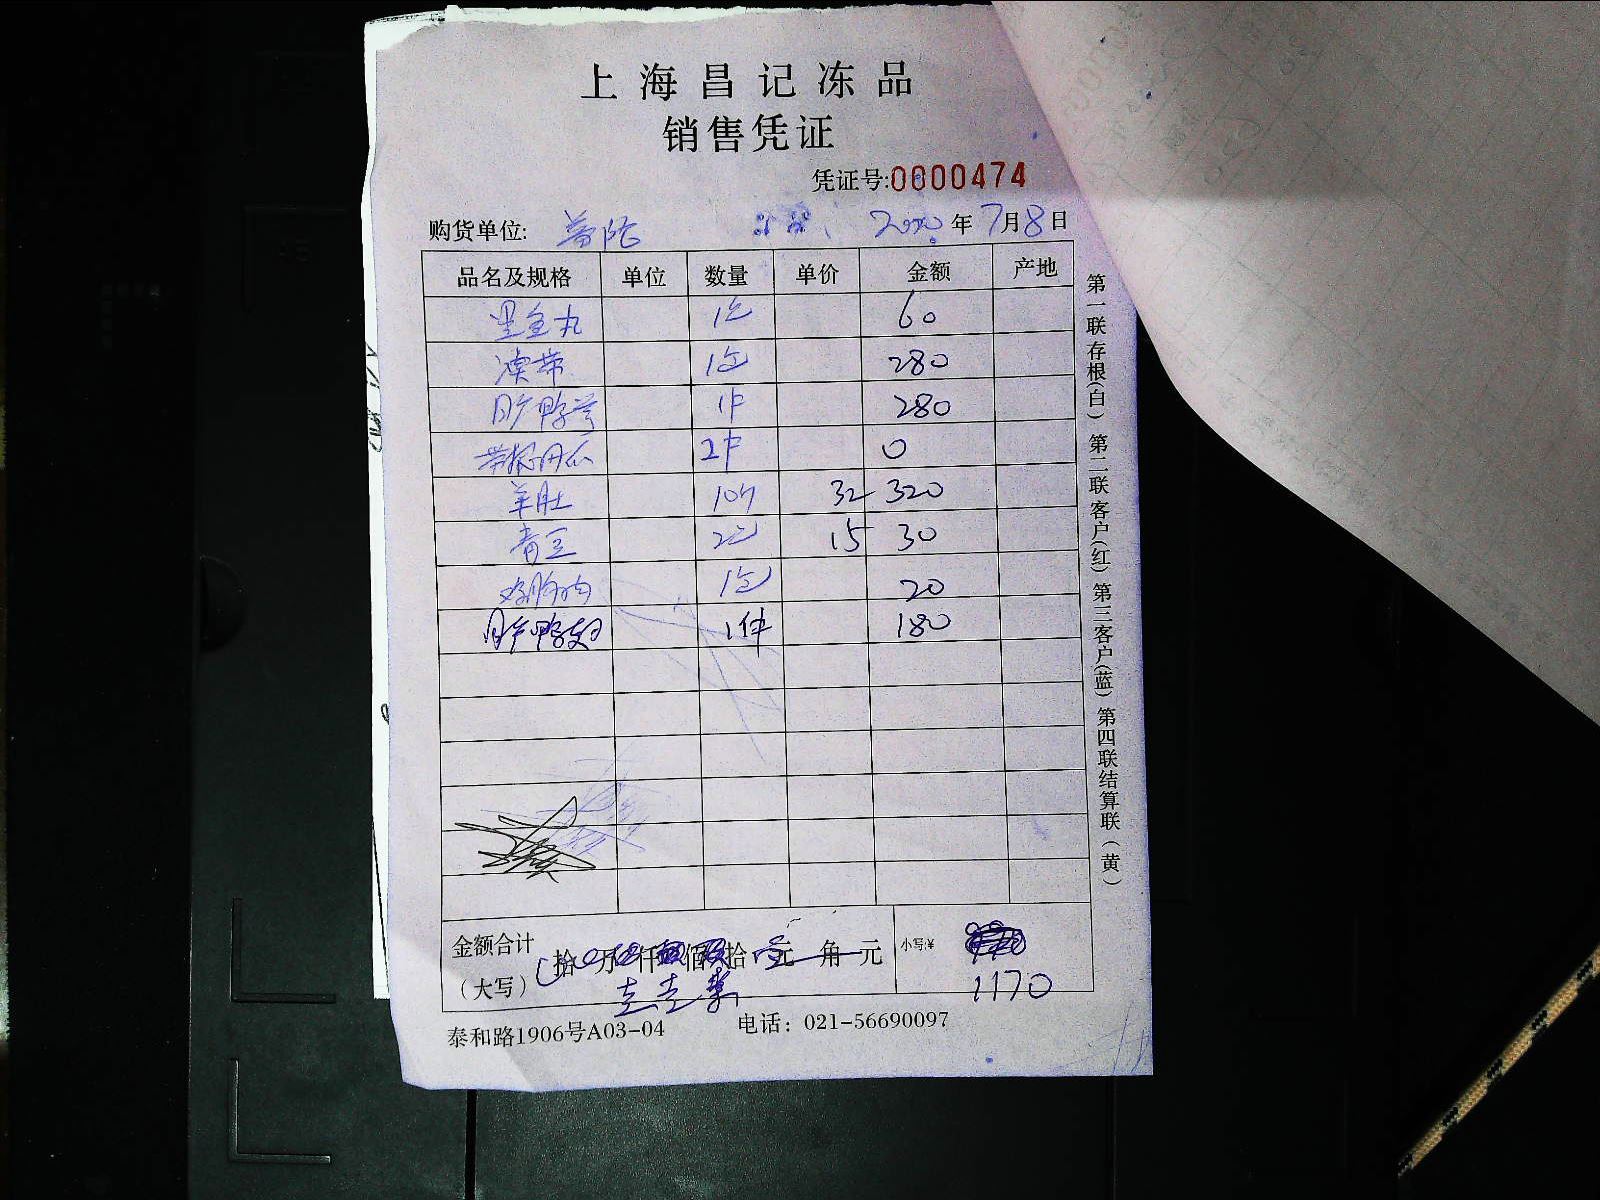 上海昌记冻品
销售凭证
凭证号:0000474
购货单位: 普陀 2020年7月8日
品名及规格 单位 数量 单价 金额 产地
墨鱼丸 1包 60
海带 1包 280
鸭 1件 280
2件 0
羊肚 10斤 32 320
青豆 2包 15 30
1包 20
鸭翅 1件 180
金额合计
(大写) 拾 万 仟 佰 拾 元 角 元 小写:¥
1170
泰和路1906号A03-04 电话：021-56690097
第一联存根(白) 第二联客户(红) 第三客户(蓝) 第四联结算联(黄)